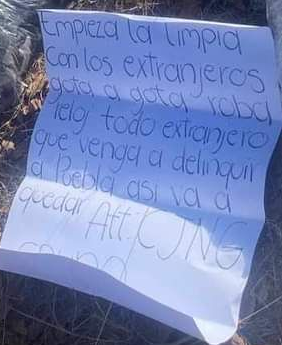 Empieza la limpia
con los extranjeros
gota a gota roba
reloj todo extranjero
que venga a delinquir
a Puebla asi va a
quedar Att: CJNG